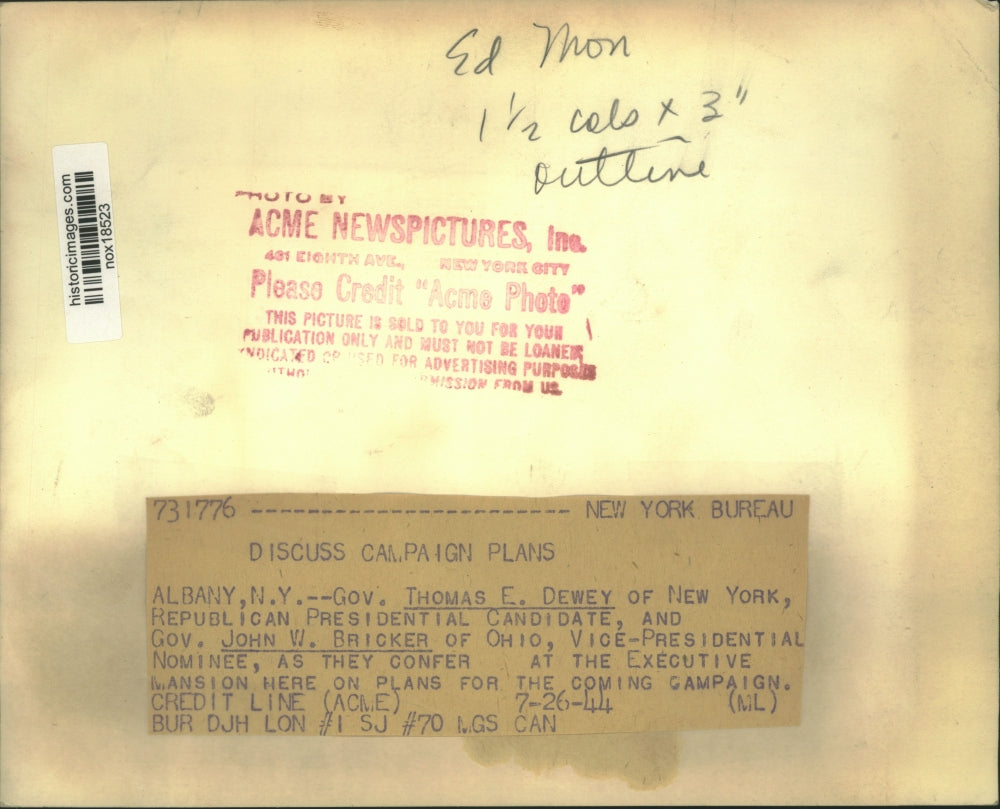 Ed Mon
1 1/2 cols x 3"
outline
historicimages.com
nox18523
PHOTO BY
ACME NEWSPICTURES, Inc.
461 EIGHTH AVE., NEW YORK CITY
Please Credit "Acme Photo"
THIS PICTURE IS SOLD TO YOU FOR YOUR
PUBLICATION ONLY AND MUST NOT BE LOANED
SYNDICATED OR USED FOR ADVERTISING PURPOSES
MISSION FROM US.
731776 ------------------------ NEW YORK BUREAU
DISCUSS CAMPAIGN PLANS
ALBANY, N.Y.--GOV. THOMAS E. DEWEY OF NEW YORK,
REPUBLICAN PRESIDENTIAL CANDIDATE, AND
GOV. JOHN W. BRICKER OF OHIO, VICE-PRESIDENTIAL
NOMINEE, AS THEY CONFER AT THE EXECUTIVE
MANSION HERE ON PLANS FOR THE COMING CAMPAIGN.
CREDIT LINE (ACME) 7-26-44 (ML)
BUR DJH LON #1 SJ #70 MGS CAN